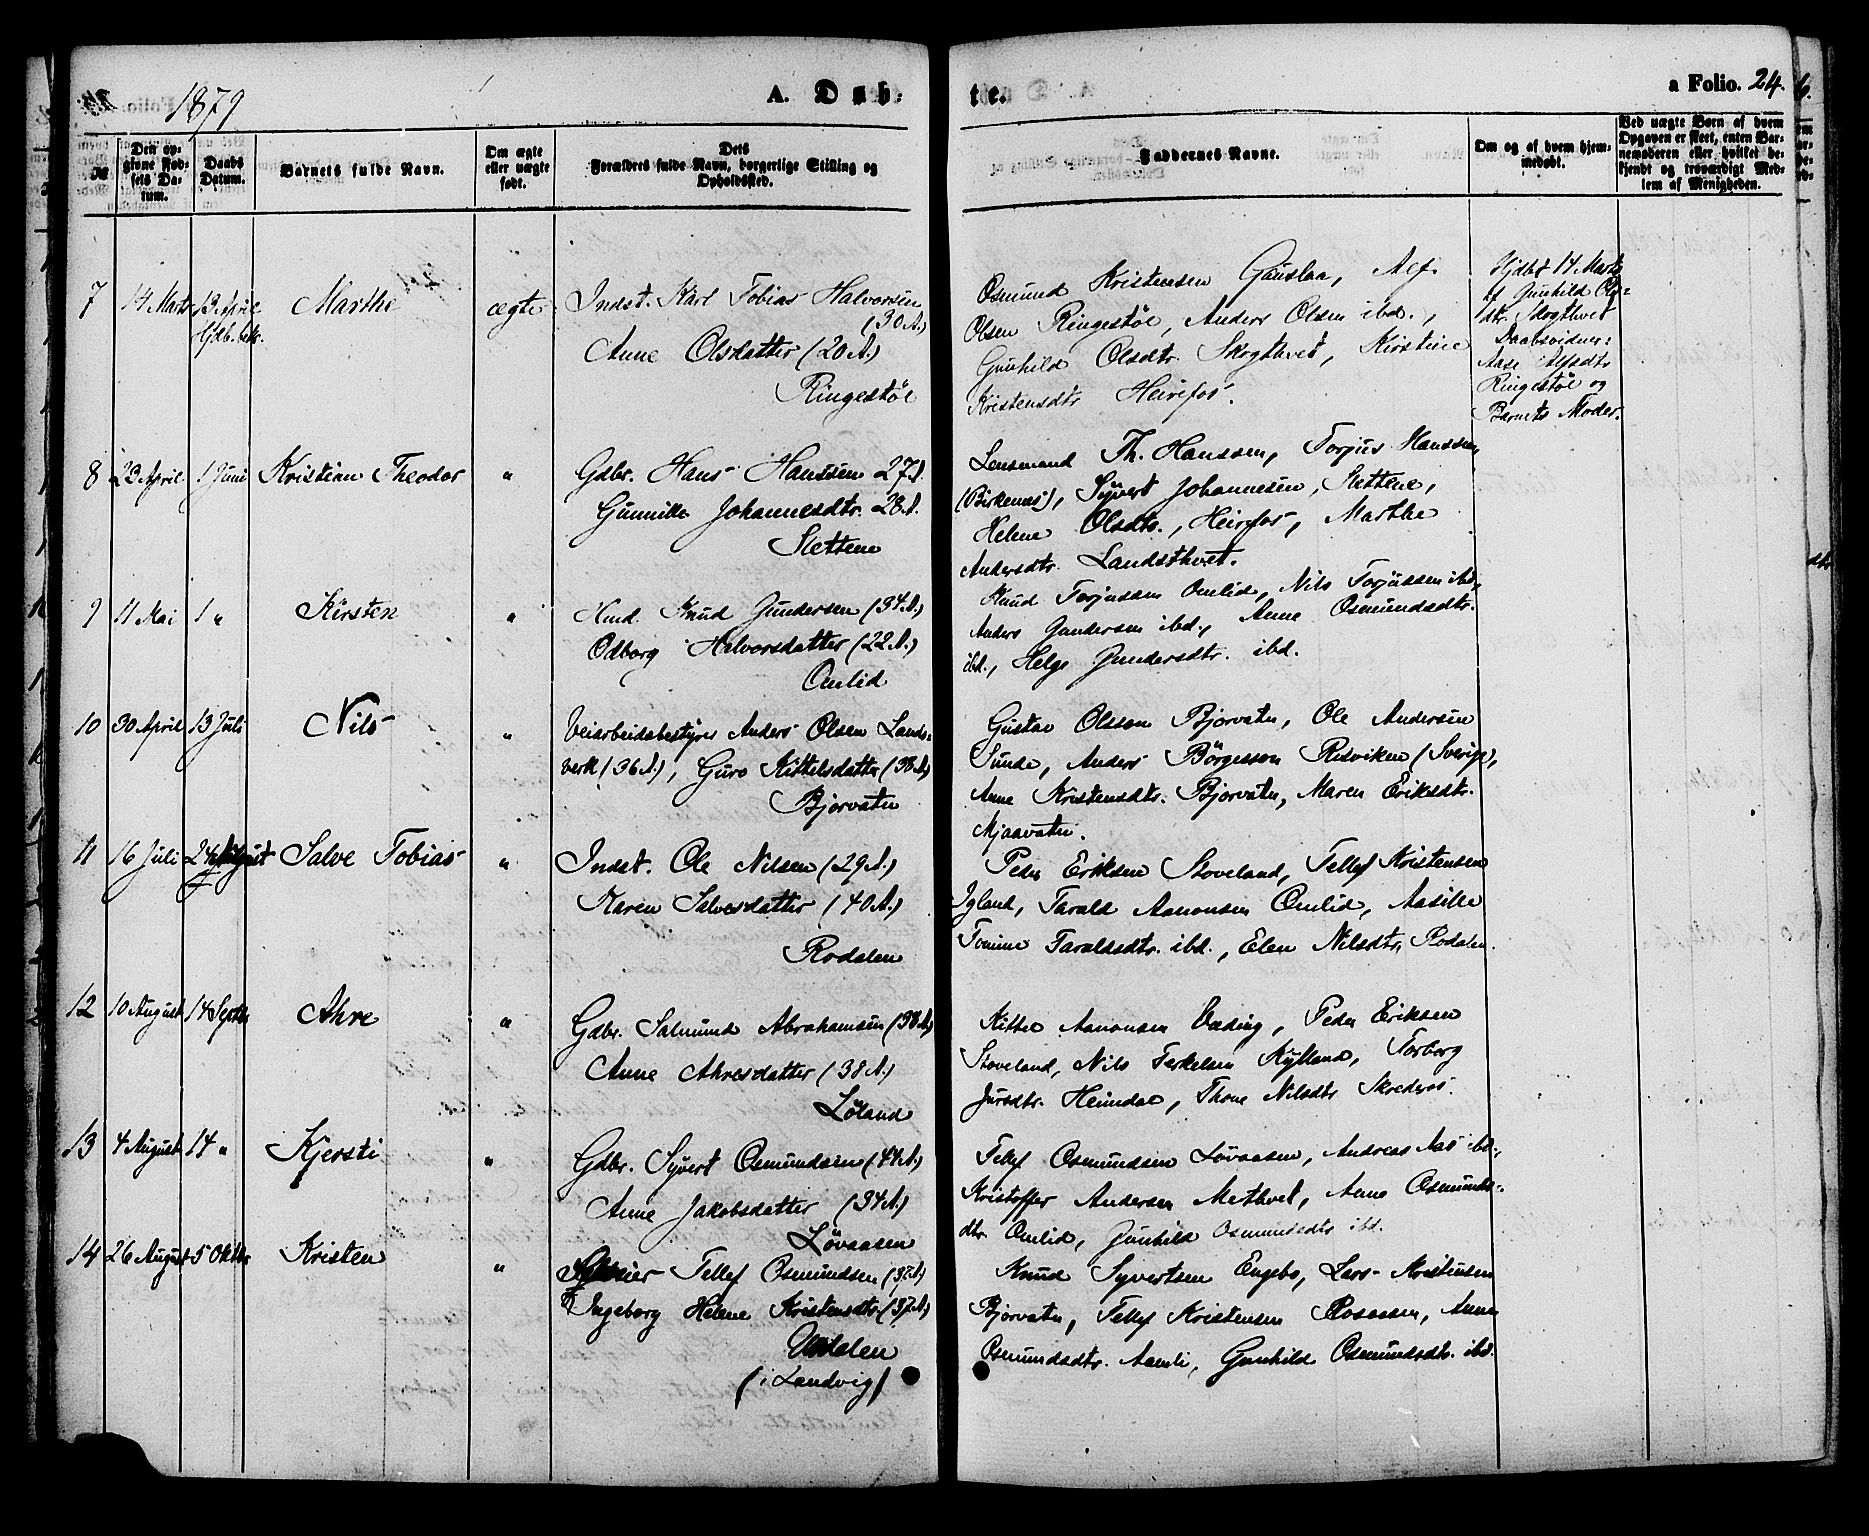 1879
A. Døb-
te.
a Folio. 24.
№
Den op-
givne Fød-
sels Da-
tum.
Daabs
Datum.
Barnets fulde Navn.
Om ægte
eller uægte
født.
Dets
Forældres fulde Navn, borgerlige Stilling og
Opholdssted.
Faddernes Navne.
Om og af hvem hjem-
medøbt.
Ved uægte Børn af hvem
Opgaven er skeet, enten Bar-
nemoderen eller hvilket be-
kjendt og troværdigt Med-
lem af Menigheden.
7
14 Marts
13 April
Hjdb. bekr.
Marthe
ægte
Indst. Karl Tobias Halvorsen
(30 A.)
Anne Olsdatter (20 A.)
Ringestøl
Osmund Kristensen Gauslaa, Alf
Olsen Ringestøl, Anders Olsen ibd.,
Gunhild Olsdtr. Skogthvet, Kirstine
Kristensdtr Heirefos.
Hjdbt 14 Marts
af Gunhild Ols-
dtr. Skogthvet
Daabsvidner:
Aase Alfsdtr
Ringestøl og
Barnets Moder.
8
23 April
1 Juni
Kristian Theodor
"
Gdbr. Hans Hanssen 27 A.
Gunnille Johannesdtr. 28 A.
Slettene
Lensmand Th. Hanssen, Torjus Hanssen
(Birkenes), Syvert Johannesen, Slettene,
Helene Olsdtr., Heirefos, Marthe
Andersdtr. Landsthvet.
9
11 Mai
1 "
Kirsten
"
Hmd. Knud Gundersen (34 A.)
Odborg Halvorsdatter (22 A.)
Omlid
Knud Torjussen Omlid, Nils Torjussen ibd.,
Anders Gundersen ibd., Anne Osmundsdtr.
ibd., Helge Gundersdtr. ibd.
10
30 April
13 Juli
Nils
"
Veiarbeidsbestyrer Anders Olsen Lands-
verk (36 A.), Guro Kittelsdatter (38 A.)
Bjorvatn
Gustav Olsson Bjorvatn, Ole Andersen
Sunde, Anders Börgesson Risviken (Sverige),
Anne Kristensdtr. Bjorvatn, Maren Eriksdtr.
Mjaavatn.
11
16 Juli
24 August
Salve Tobias
"
Indst. Ole Nilsen (29 A.)
Karen Salvesdatter (40 A.)
Rodalen
Peder Eriksen Stoveland, Tellef Kristensen
Igland, Tarald Aanonsen Omlid, Aasille
Tomine Taraldsdtr. ibd., Elen Nilsdtr. Rodalen.
12
10 August
14 Septbr
Ahre
"
Gdbr. Salmund Abrahamsen (38 A.)
Anne Ahresdatter (38 A.)
Løland
Kittel Aanonsen Væding, Peder Eriksen
Stoveland, Nils Terkelsen Kylland, Torborg
Jursdtr. Heimdal, Thone Nilsdtr Skrederos.
13
4 August
14 "
Kjersti
"
Gdbr. Syvert Osmundsen (44 A.)
Anne Jakobsdatter (34 A.)
Løvaasen
Tellef Osmundsen Løvaasen, Andreas Aas ibd.,
Kristoffer Andersen Mæthvet, Anne Osmunds-
dtr. Omlid, Gunhild Osmundsdtr ibd.
14
26 August
5 Oktbr
Kristen
"
Tellef Osmundsen (37 A.)
Ingeborg Helene Kristensdtr. (37 A.)
Uddalen
(i Landvig)
Knud Syvertsen Engebo, Lars Kristensen
Bjorvatn, Tellef Kristensen Rosaasen, Anne
Osmundsdtr. Aamli, Gunhild Osmundsdtr. ibd.